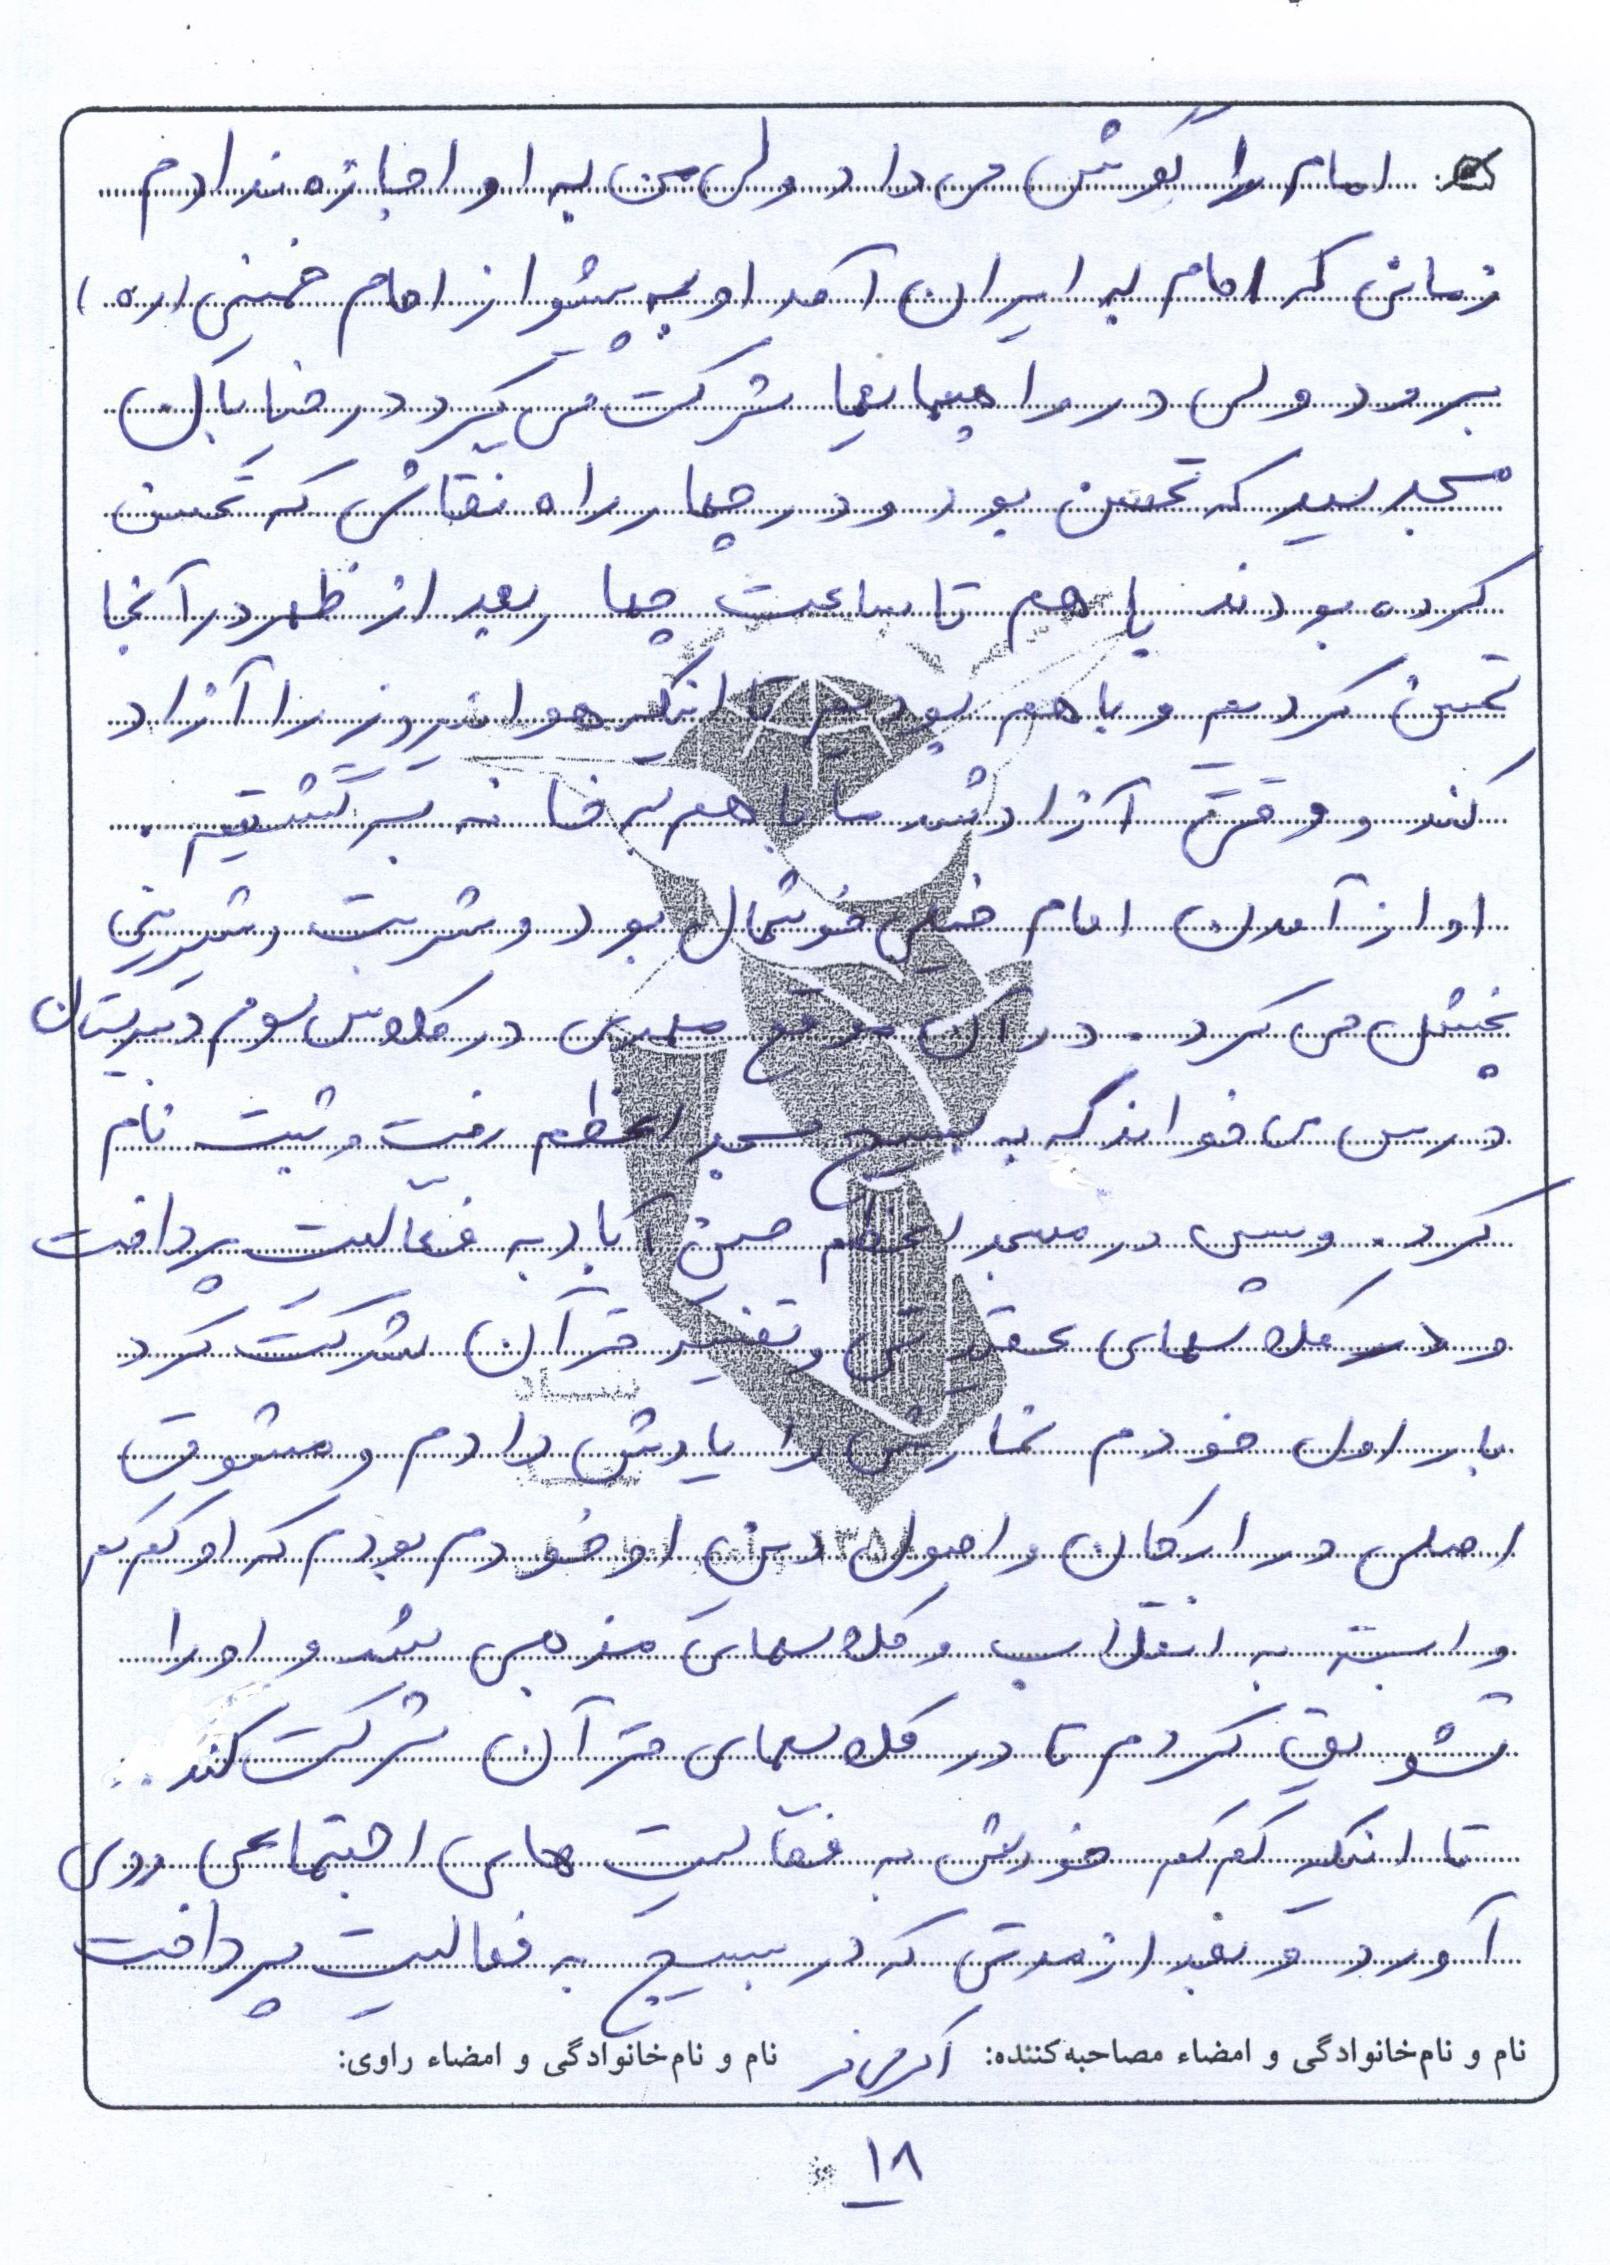 امام را گوش می داد ولی من به او اجازه ندادم
زمانی که امام به ایران آمد او به پیشواز امام خمینی (ره)
برود ولی در راهپیمایها شرکت می کرد در خیابان
مسجد سید که تحصن بود و در چهار راه نقاشی که تحصن
کرده بودند با هم تا ساعت چهار بعد از ظهر در آنجا
تحصن کردیم و با هم بودیم تا اینکه هوانیروز را آزاد
کند و وقتی آزاد شد ما با هم به خانه برگشتیم .
او از آمدن امام خیلی خوشحال بود و شربت و شیرینی
پخش می کرد . در آن موقع مهدی در کلاس سوم دبیرستان
درس می خواند که به بسیج مسجد اعظم رفت و ثبت نام
کرد . و سپس در مسجد اعظم حسین آباد به فعّالیت پرداخت
و در کلاسهای عقیدتی و تفسیر قرآن شرکت کرد
بار اول خودم نمازش را یادش دادم و مشوق
اصلی در ارکان و اصول دین او خودم بودم که او کم کم
وابسته به انقلاب و کلاسهای مذهبی شد و او را
تشویق کردم تا در کلاسهای قرآن شرکت کند .
تا اینکه کم کم خودش به فعّالیت های اجتماعی روی
آورد و بعد از مدتی که در بسیج به فعالیت پرداخت
نام و نام‌خانوادگی و امضاء مصاحبه‌کننده: نام و نام‌خانوادگی و امضاء راوی:
۱۸